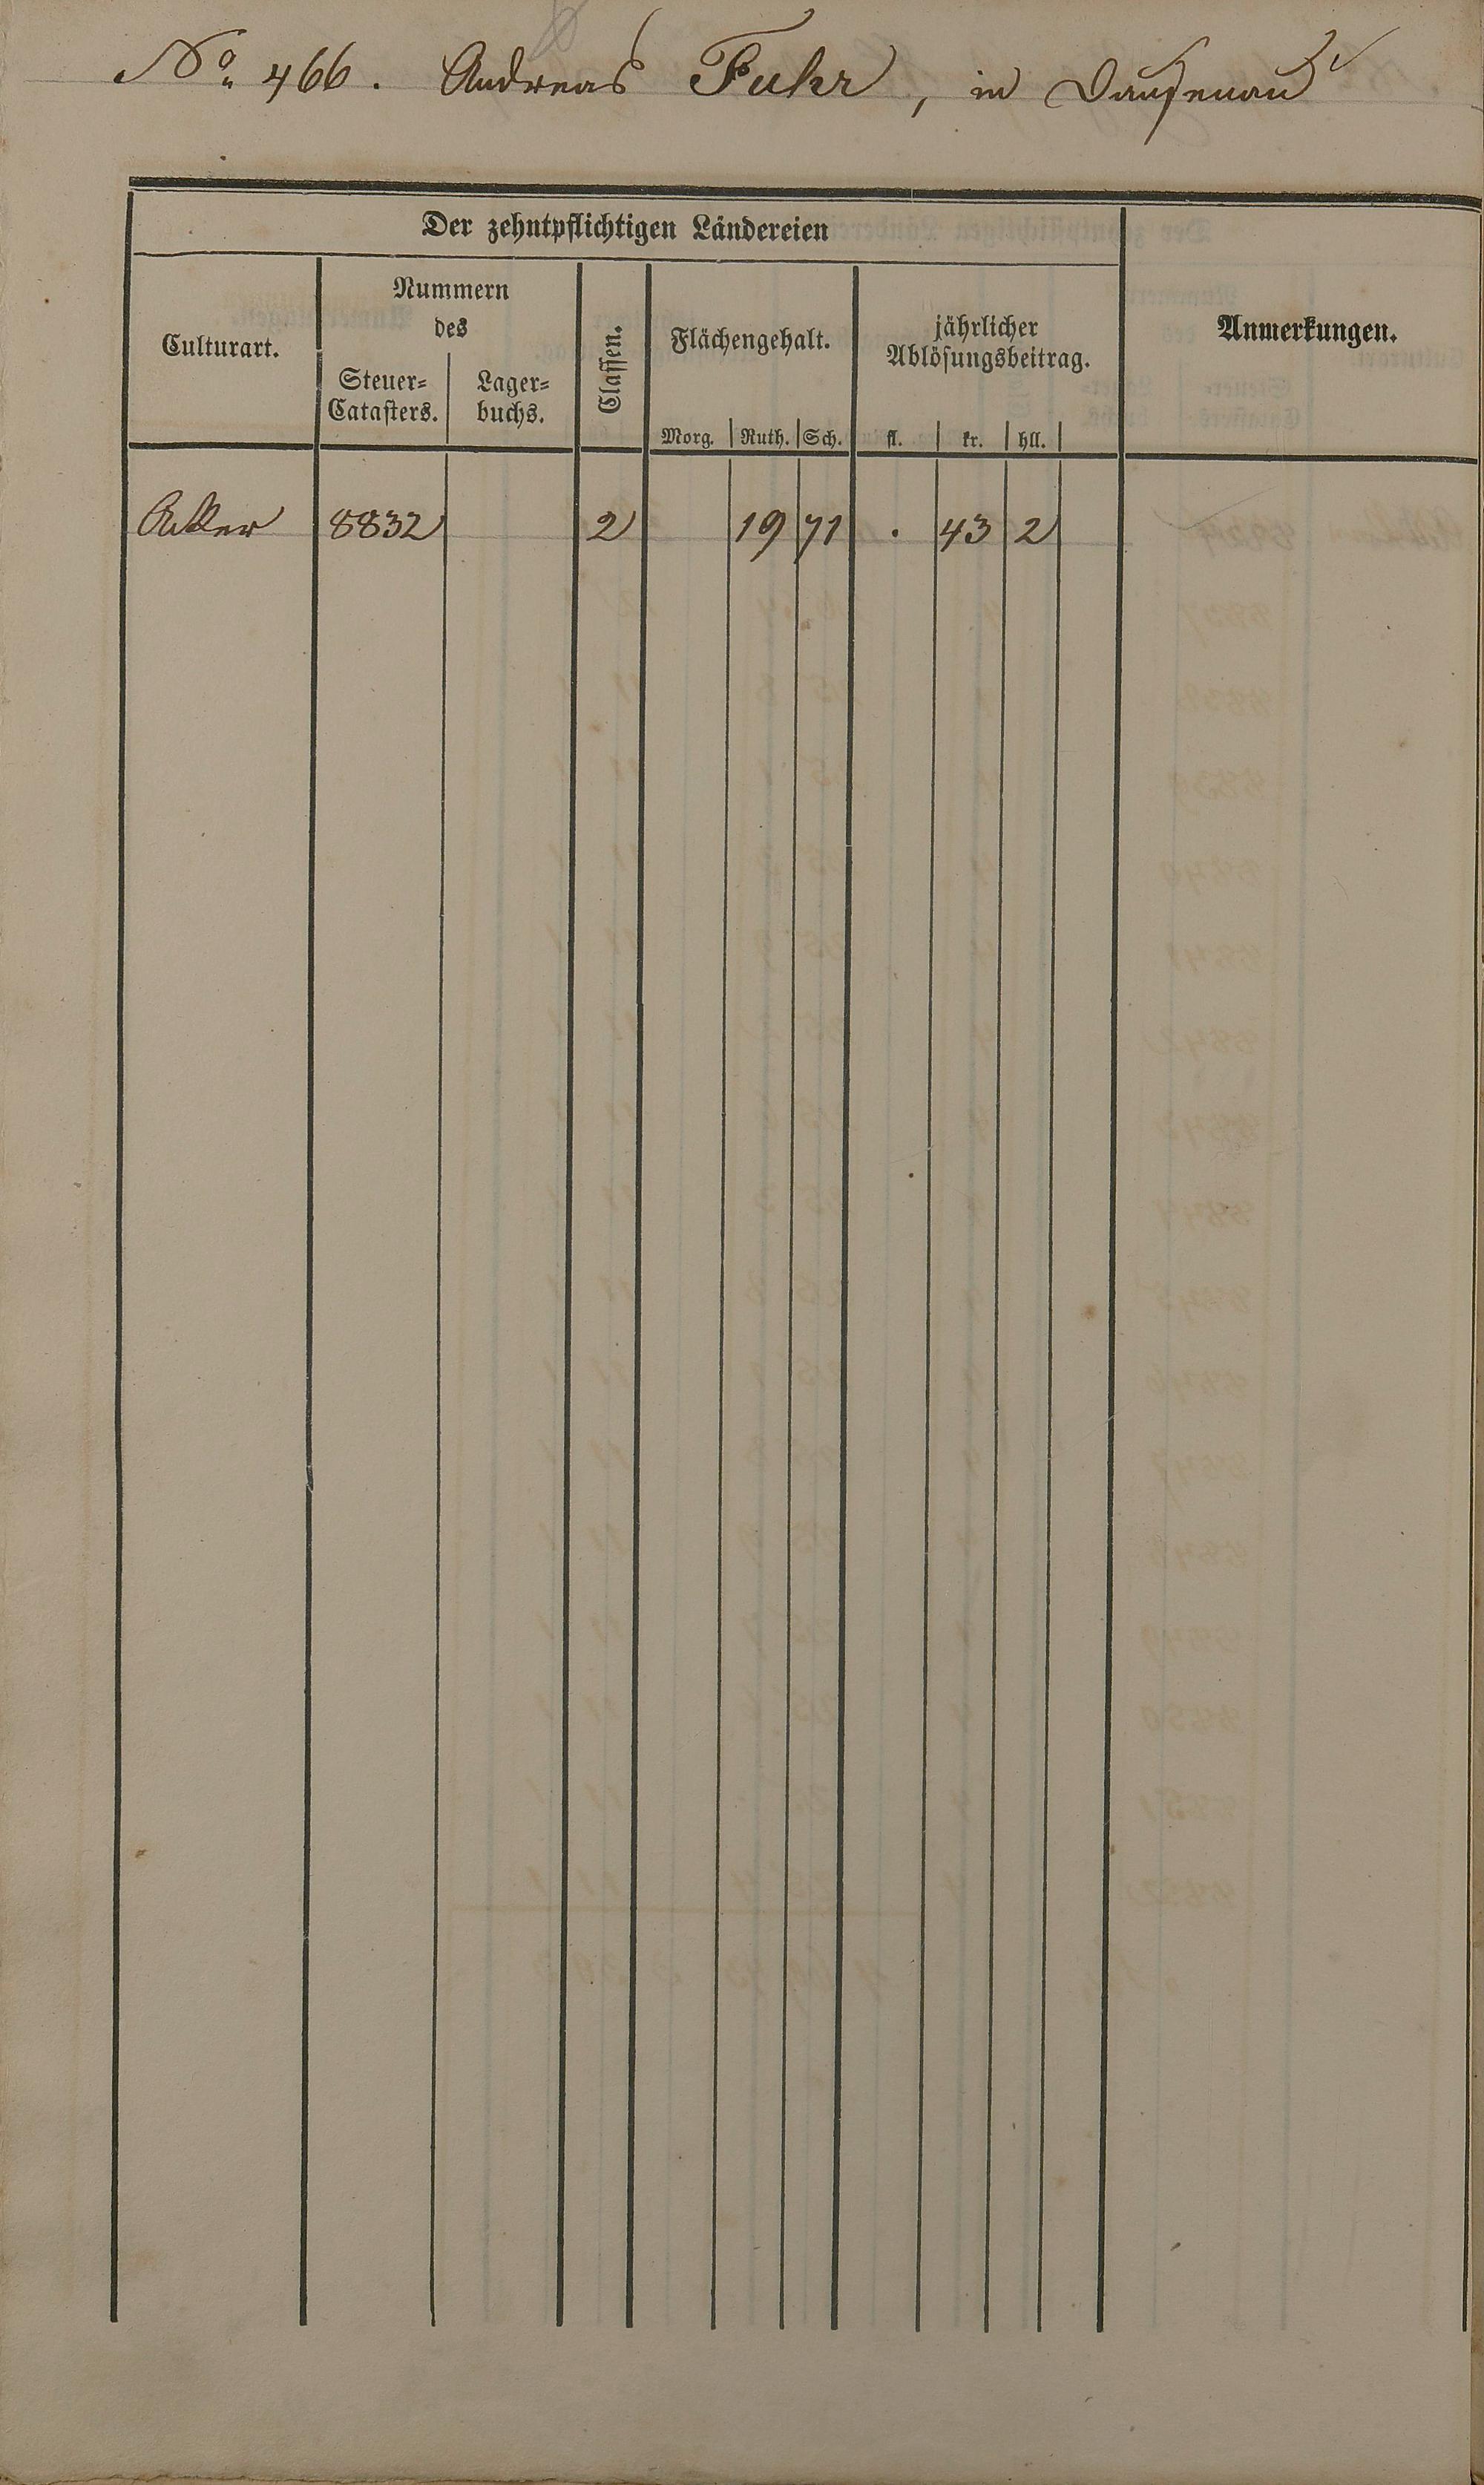 No. 466. Andreas Fuhr, in Dausenau
Der zehntpflichtigen Ländereien
Culturart.
Nummern
des
Steuer=
Catasters.
Lager=
buchs.
Classen.
Flächengehalt.
Morg. Ruth. Sch.
jährlicher
Ablösungsbeitrag.
fl. kr. hll.
Anmerkungen.
Acker 8832 2 19 71 . 43 2